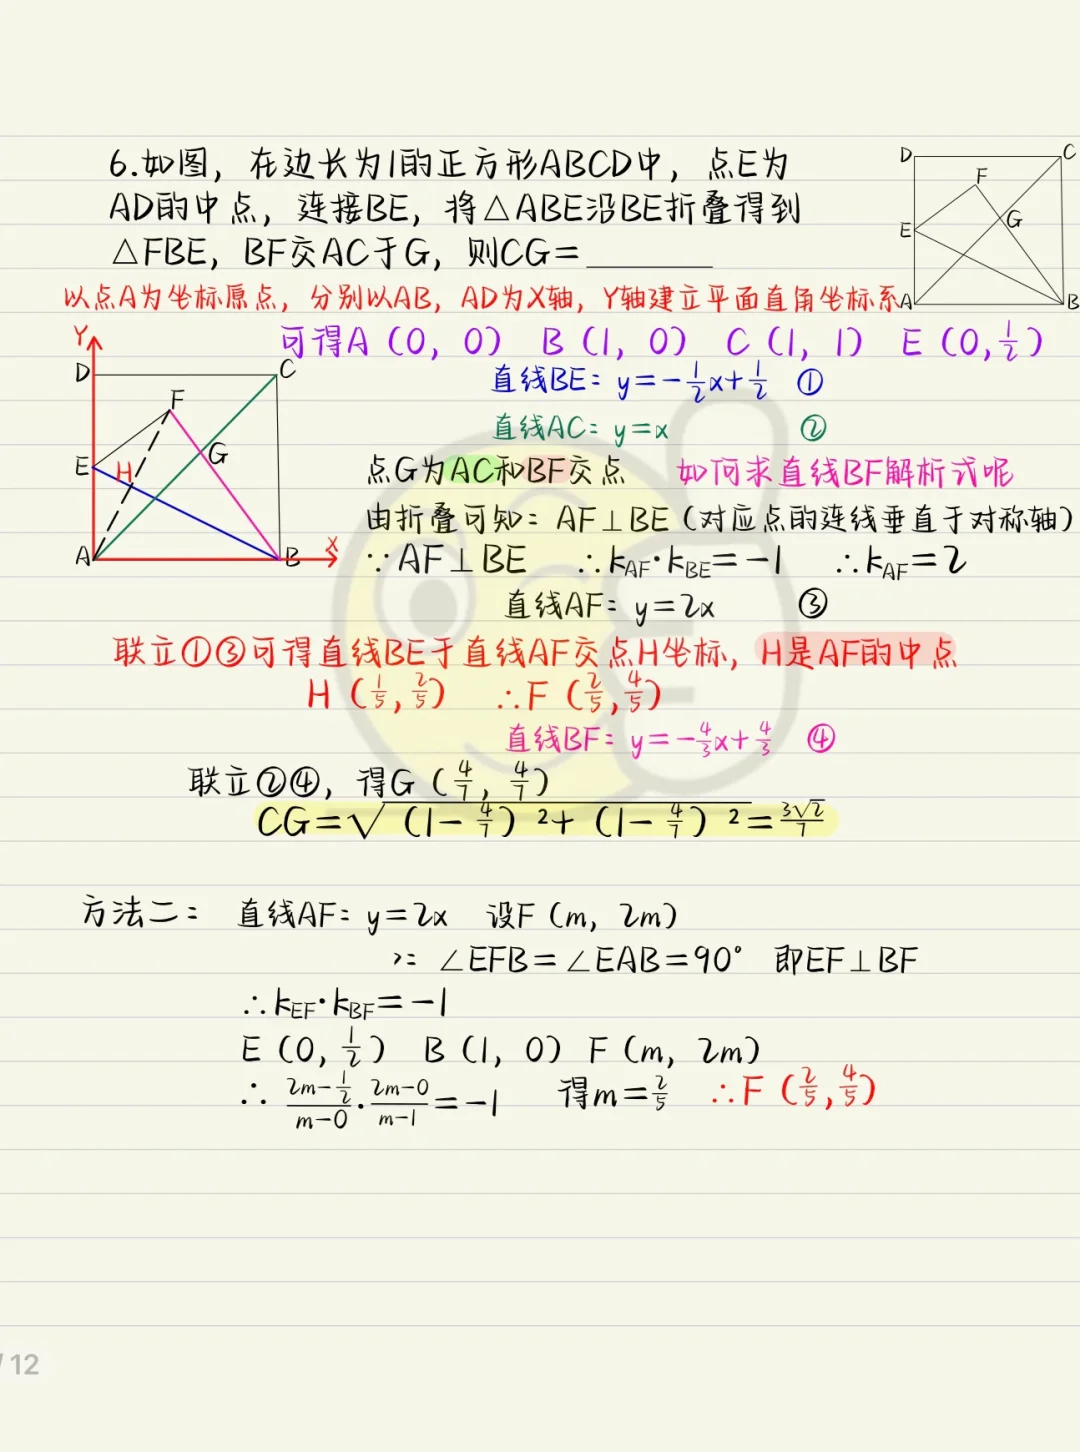 6.如图，在边长为1的正方形ABCD中，点E为
AD的中点，连接BE，将△ABE沿BE折叠得到
△FBE，BF交AC于G，则CG=______
D
C
F
G
E
A
B
以点A为坐标原点，分别以AB，AD为X轴，Y轴建立平面直角坐标系
可得A（0，0） B（1，0） C（1，1） E（0,1/2）
Y
D
C
F
G
E
H
A
B
X
直线BE：y=-1/2x+1/2 ①
直线AC：y=x ②
点G为AC和BF交点 如何求直线BF解析式呢
由折叠可知：AF⊥BE（对应点的连线垂直于对称轴）
∵AF⊥BE ∴kAF·kBE=-1 ∴kAF=2
直线AF：y=2x ③
联立①③可得直线BE于直线AF交点H坐标，H是AF的中点
H（1/5,2/5） ∴F（2/5,4/5）
直线BF：y=-4/3x+4/3 ④
联立②④，得G（4/7,4/7）
CG=√（1-4/7）²+（1-4/7）²=3√2/7
方法二： 直线AF：y=2x 设F（m，2m）
∵∠EFB=∠EAB=90° 即EF⊥BF
∴kEF·kBF=-1
E（0,1/2） B（1，0） F（m，2m）
∴ (2m-1/2)/(m-0)·(2m-0)/(m-1)=-1 得m=2/5 ∴F（2/5,4/5）
/12